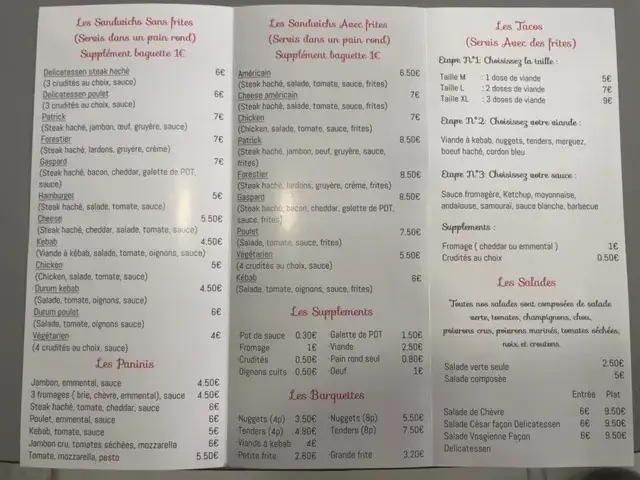 Les Sandwichs Sans frites
(Servis dans un pain rond)
Supplément baguette 1€
Delicatessen steak haché 6€
(3 crudités au choix, sauce)
Delicatessen poulet 6€
(3 crudités au choix, sauce)
Patrick 7€
(Steak haché, jambon, œuf, gruyère, sauce)
Forestier 7€
(Steak haché, lardons, gruyère, crème)
Gaspard 7€
(Steak haché, bacon, cheddar, galette de PDT,
sauce)
Hamburger 5€
(Steak haché, salade, tomate, sauce)
Cheese 5.50€
(Steak haché, cheddar, salade, tomate, sauce)
Kebab 4.50€
(Viande à kébab, salade, tomate, oignons, sauce)
Chicken 5€
(Chicken, salade, tomate, sauce)
Durum kebab 4.50€
(Salade, tomate, oignons, sauce)
Durum poulet 6€
(Salade, tomate, oignons sauce)
Végétarien 4€
(4 crudités au choix, sauce)
Les Paninis
Jambon, emmental, sauce 4.50€
3 fromages ( brie, chèvre, emmental), sauce 4.50€
Steak haché, tomate, cheddar, sauce 6€
Poulet, emmental, sauce 6€
Kebab, tomate, sauce 5€
Jambon cru, tomates séchées, mozzarella 6€
Tomate, mozzarella, pesto 5.50€
Les Sandwichs Avec frites
(Servis dans un pain rond)
Supplément baguette 1€
Américain 6.50€
(Steak haché, salade, tomate, sauce, frites)
Cheese américain 7€
(Steak haché, salade, tomate, sauce, frites)
Chicken 7€
(Chicken, salade, tomate, sauce, frites)
Patrick 8.50€
(Steak haché, jambon, oeuf, gruyère, sauce,
frites)
Forestier 8.50€
(Steak haché, lardons, gruyère, crème, frites)
Gaspard 8.50€
(Steak haché, bacon, cheddar, galette de PDT,
sauce, frites)
Poulet 7.50€
(Salade, tomate, sauce, frites)
Végétarien 5.50€
(4 crudités au choix, sauce)
Kébab 6€
(Salade, tomate, oignons, sauce, frites)
Les Supplements
Pot de sauce 0.30€ ·Galette de PDT 1.50€
Fromage 1€ ·Viande 2.50€
Crudités 0.50€ ·Pain rond seul 0.80€
Oignons cuits 0.50€ ·Oeuf 1€
Les Barquettes
Nuggets (4p) 3.50€ ·Nuggets (8p) 5.50€
·Tenders (4p) 4.80€ ·Tenders (8p) 7.50€
Viande à kebab 4€
Petite frite 2.60€ ·Grande frite 3.20€
Les Tacos
(Servis Avec des frites)
Etape N°1: Choisissez la taille :
Taille M : 1 dose de viande 5€
Taille L : 2 doses de viande 7€
Taille XL : 3 doses de viande 9€
Etape N°2: Choisissez votre viande :
Viande à kebab, nuggets, tenders, merguez,
boeuf haché, cordon bleu
Etape N°3: Choisissez votre sauce :
Sauce fromagère, Ketchup, mayonnaise,
andalouse, samouraï, sauce blanche, barbecue
Supplements :
Fromage ( cheddar ou emmental ) 1€
Crudités au choix 0.50€
Les Salades
Toutes nos salades sont composées de salade
verte, tomates, champignons, chou,
poivrons crus, poivrons marinés, tomates séchées,
noix et croutons.
Salade verte seule 2.50€
Salade composée 5€
Entrée Plat
Salade de Chèvre 6€ 9.50€
Salade César façon Delicatessen 6€ 9.50€
Salade Vosgienne Façon 6€ 9.50€
Delicatessen